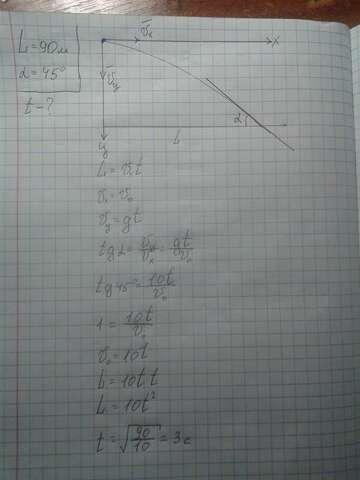 L = 90м
α = 45°
t - ?
V̄ₓ
x
V̄y
α
y
L
L = Vₓt
Vₓ = V₀
Vy = gt
tg α = Vy/Vₓ = gt/V₀
tg 45° = 10t/V₀
1 = 10t/V₀
V₀ = 10t
L = 10t·t
L = 10t²
t = √(90/10) = 3с